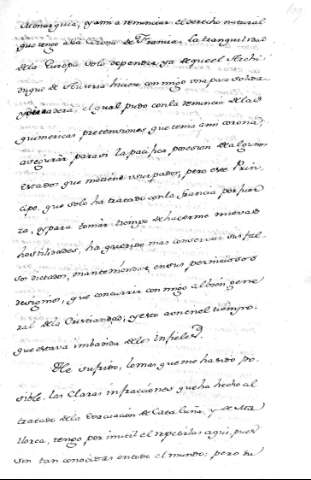 Monarquia, y ami a renunciar el derecho natural
que tengo ala Corona de Francia, la tranquilidad
dela Europa solo dependia ya de que el Archi
duque de Austria hiciese conmigo una paz solida
y verdadera, el qual pudo con la renuncia de las
quimericas pretensiones que tenia ami corona,
asegurar para si la pacifica posesion de algunos
estados que me tiene usurpados, pero este Prin
cipe, que solo ha tratado con la Francia por fuer
za, y para tomar tiempo de hacerme nuevas
hostilidades, ha querido mas conservar sus fal
sos dictados, manteniendose en sus perniciosos
designios, que concurrir conmigo al bien gene
ral dela Cristiandad, y esto aun en el tiempo
que estava imbadida delos infieles.
He sufrido, lo mas que me ha sido po
sible, las claras infracciones que ha hecho al
tratado dela Evacuacion de Cataluña, y de Ma
llorca, tengo por inutil el repetirlas aqui, pues
son tan conocidas en todo el mundo; pero su